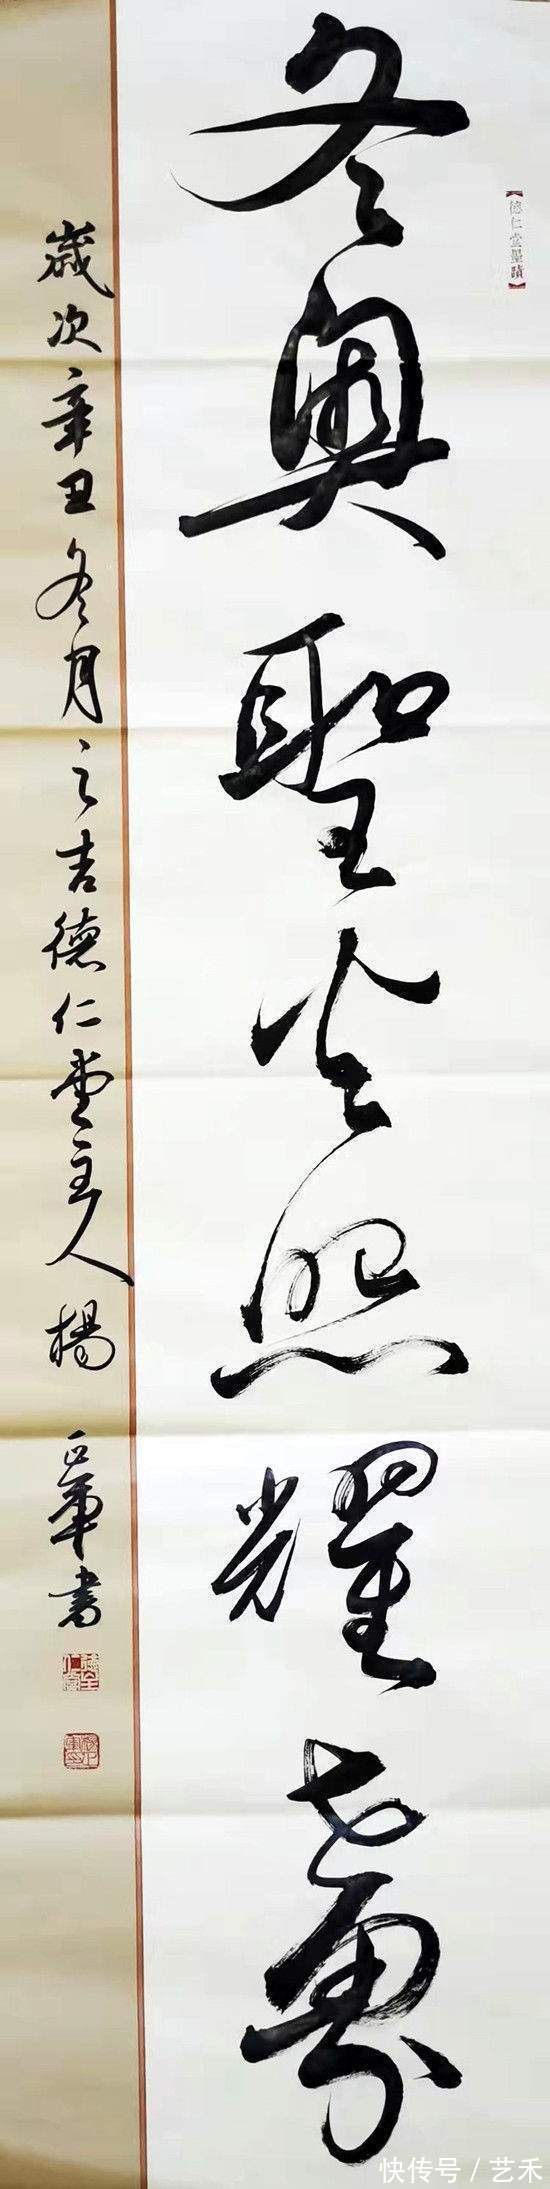 【德仁堂墨蹟】
冬奥聖火照耀世界
歲次辛丑冬月之吉德仁堂主人楊正軍書
快传号 / 艺禾